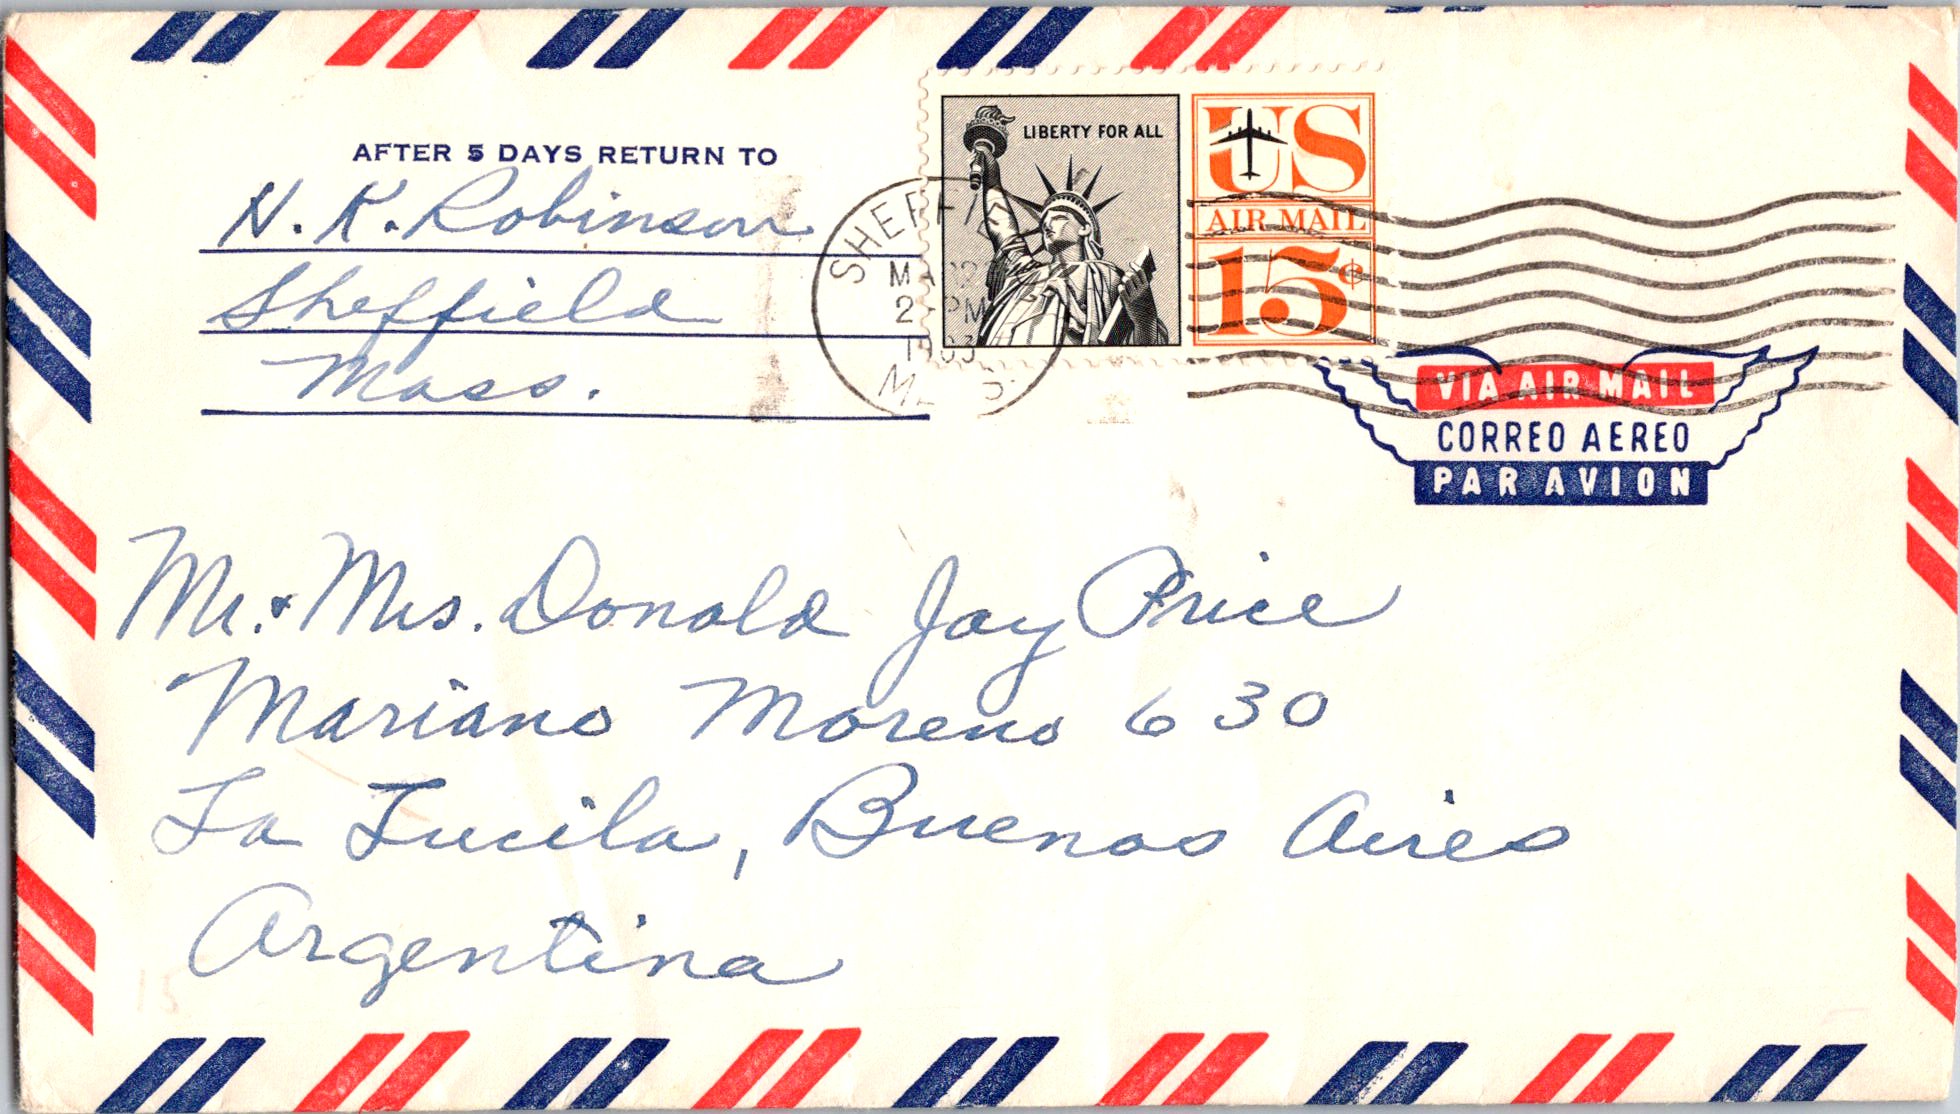 AFTER 5 DAYS RETURN TO
N. K. Robinson
Sheffield
Mass.
LIBERTY FOR ALL
US
AIR MAIL
15¢
SHEFFIE
PM
VIA AIR MAIL
CORREO AEREO
PAR AVION
Mr. & Mrs. Donald Jay Price
Mariano Moreno 630
La Lucila, Buenos Aires
Argentina
15